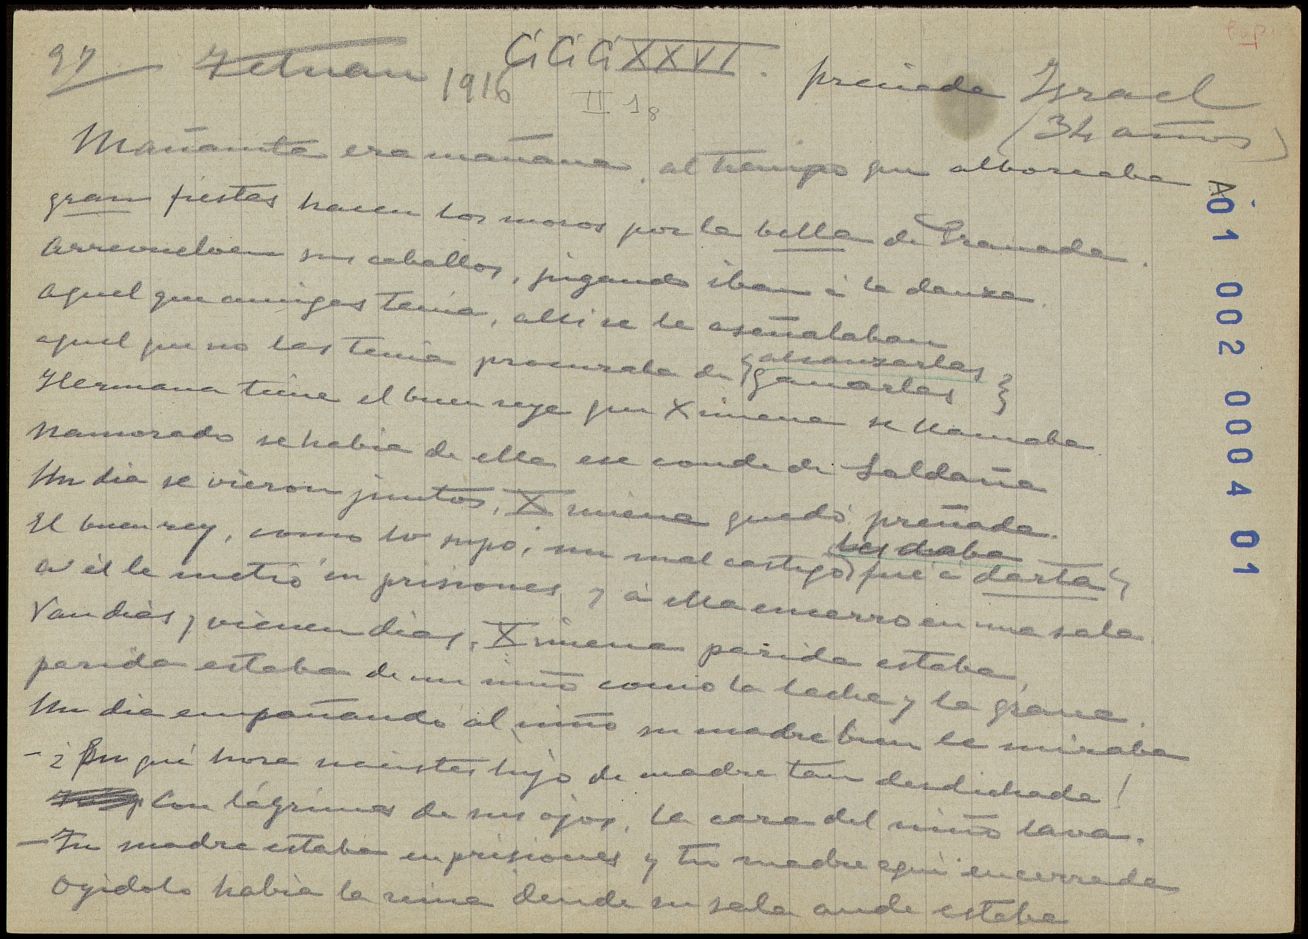 97 Tetuan 1916 CiCiCiXXVI. preciada Israel
II 18
(34 años)
Mañanita era mañana, al tiempo que alboreaba
gran fiestas hacen los moros por la bella de Granada.
arrevuelven sus caballos, jugando iban á la danza.
aquel que amigas tenía, allí se le aseñalaban
aquel que no las tenía procuraba de {alcanzarlas
ganarlas}
Hermana tiene el buen reye que Ximena se llamaba
namorado se había de ella ese conde de Saldaña
Un dia se vieron juntos, Ximena quedó preñada.
les daba
El buen rey, como lo supo, un mal castigo fué á darla
a él le metió en prisiones y á ella encerro en una sala.
Van dias y vienen dias, Ximena parida estaba,
parida estaba de un niño como la leche y la grana.
Un dia empañando al niño su madre bien le miraba
- ¿ En qué hora nacistes hijo de madre tan desdichada!
Con lágrimas de sus ojos, la cara del niño lava.
- Tu madre estaba en prisiones y tu madre aqui encerrada
Oyidolo había la reina dende su sala ande estaba
A01 002 0004 01